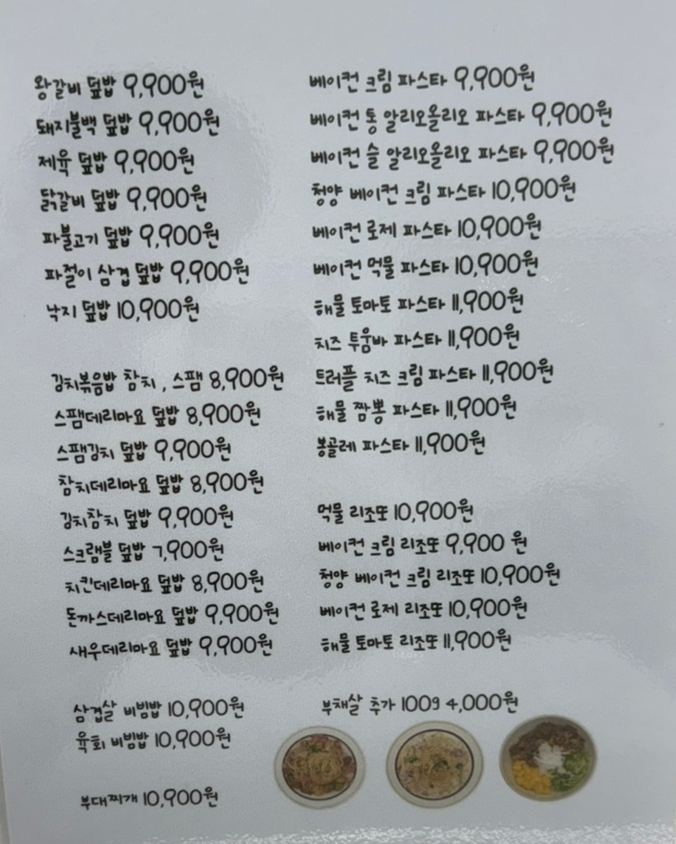 왕갈비 덮밥 9,900원
돼지불백 덮밥 9,900원
제육 덮밥 9,900원
닭갈비 덮밥 9,900원
파불고기 덮밥 9,900원
파절이 삼겹 덮밥 9,900원
낙지 덮밥 10,900원
김치볶음밥 참치, 스팸 8,900원
스팸데리마요 덮밥 8,900원
스팸김치 덮밥 9,900원
참치데리마요 덮밥 8,900원
김치참치 덮밥 9,900원
스크램블 덮밥 7,900원
치킨데리마요 덮밥 8,900원
돈까스데리마요 덮밥 9,900원
새우데리마요 덮밥 9,900원
삼겹살 비빔밥 10,900원
육회 비빔밥 10,900원
부대찌개 10,900원
베이컨 크림 파스타 9,900원
베이컨 통 알리오올리오 파스타 9,900원
베이컨 슬 알리오올리오 파스타 9,900원
청양 베이컨 크림 파스타 10,900원
베이컨 로제 파스타 10,900원
베이컨 먹물 파스타 10,900원
해물 토마토 파스타 11,900원
치즈 투움바 파스타 11,900원
트러플 치즈 크림 파스타 11,900원
해물 짬뽕 파스타 11,900원
봉골레 파스타 11,900원
먹물 리조또 10,900원
베이컨 크림 리조또 9,900 원
청양 베이컨 크림 리조또 10,900원
베이컨 로제 리조또 10,900원
해물 토마토 리조또 11,900원
부채살 추가 100g 4,000원